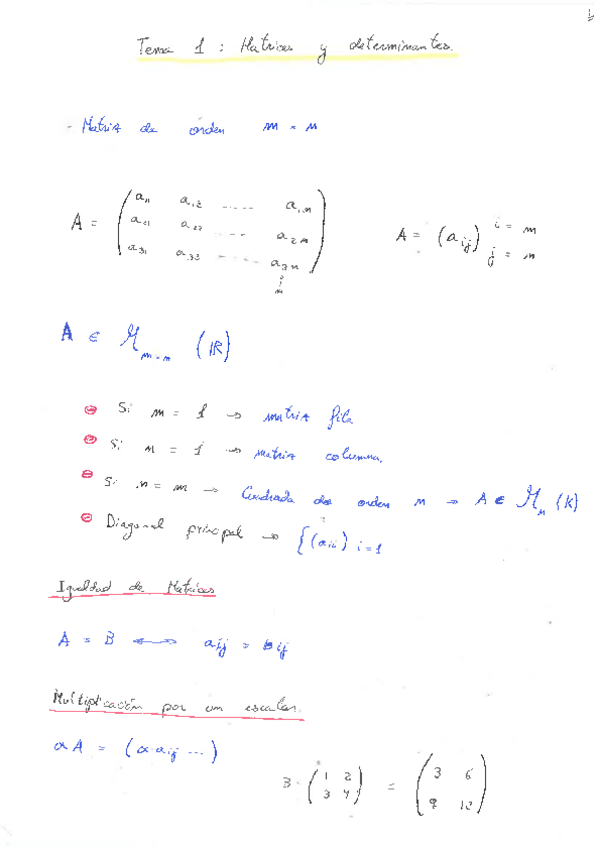 Tema 1 : Matrices y determinantes.
- Matriz de orden m × n
A = ( a11 a12 ..... a1n
a21 a22 ..... a2n
a31 a32 ..... a3n )
A = (aij) i = m
j = n
A ∈ M m×n (IR)
Si m = 1 → matriz fila
Si n = 1 → matriz columna.
Si n = m → Cuadrada de orden n → A ∈ Mn (K)
Diagonal principal → {(aii) i=1
Igualdad de Matrices
A = B ⟷ aij = bij
Multiplicación por un escalar.
αA = (α·aij ...)
3 · ( 1 2 = ( 3 6
3 4 ) 9 12 )